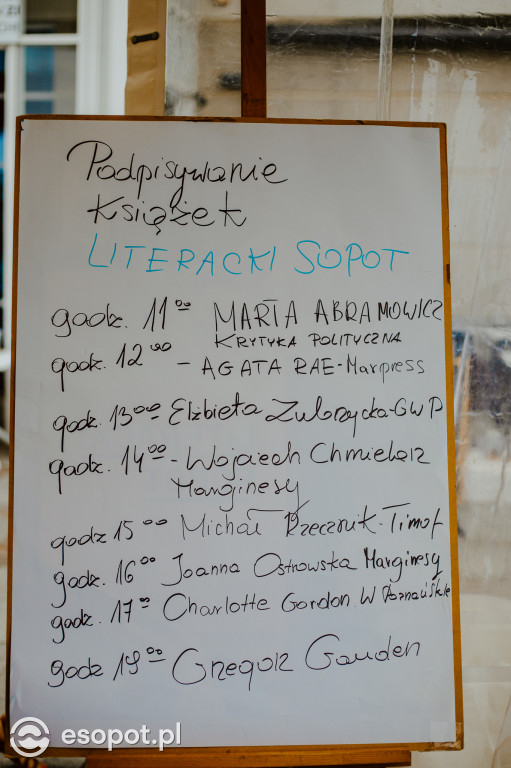 Podpisywanie
Książek
LITERACKI SOPOT
godz. 11⁰⁰ MARTA ABRAMOWICZ
KRYTYKA POLITYCZNA
godz. 12⁰⁰ - AGATA RAE - Marpress
godz. 13⁰⁰ Elżbieta Zubrzycka - GWP
godz. 14⁰⁰ - Wojciech Chmielarz
Marginesy
godz 15⁰⁰ Michał Rzecznik - Timof
godz. 16⁰⁰ Joanna Ostrowska Marginesy
godz. 17⁰⁰ Charlotte Gordon W Poznańskie
godz 19⁰⁰ Grzegorz Gauden
esopot.pl